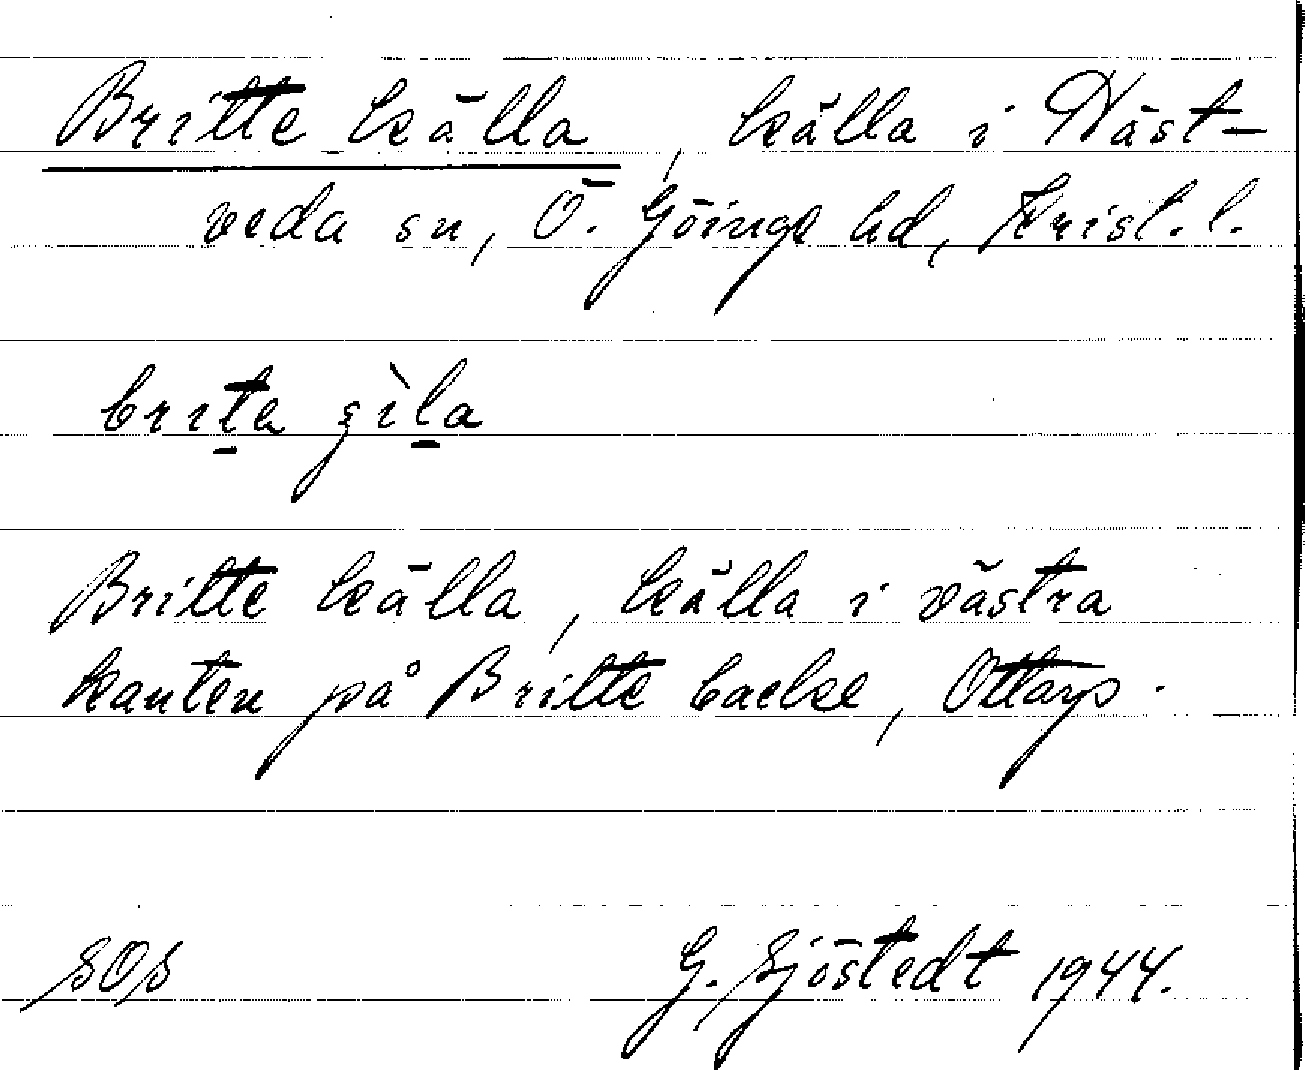 Britte källa, källa i Häst-
veda sn, Ö. Göinge hd, Krist. l.
brita
Britte källa, källa i västra
kanten på Britte backe, Ottarp.
SOS G. Sjöstedt 1944.